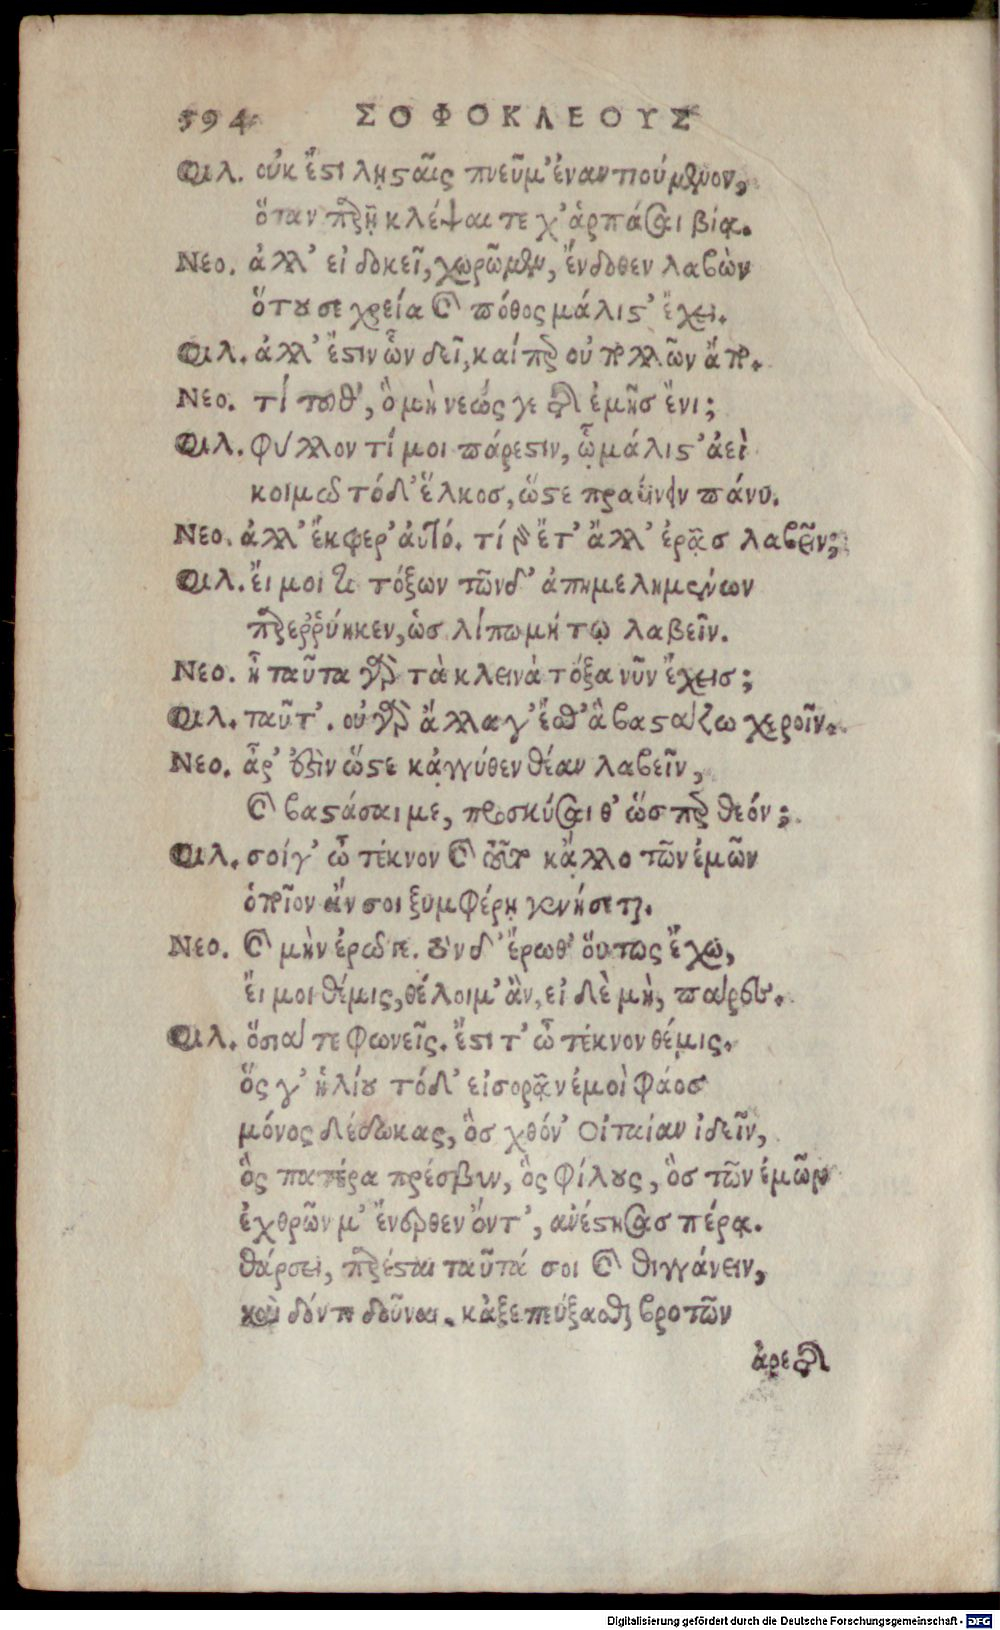 594 ΣΟΦΟΚΛΕΟΥΣ
Φιλ. οὐκ ἔστι λῃσταῖς πνεῦμ' ἐναντιούμενον,
ὅταν παρῇ κλέψαι τε χ' ἁρπάσαι βίᾳ.
Νεο. ἀλλ' εἰ δοκεῖ, χωρῶμεν, ἔνδοθεν λαβὼν
ὅτου σε χρεία καὶ πόθος μάλιστ' ἔχει.
Φιλ. ἀλλ' ἔστιν ὧν δεῖ, καίπερ οὐ πολλῶν ἄπο.
Νεο. τί τοῦθ', ὃ μὴ νεώς γε τῆς ἐμῆσ ἔνι;
Φιλ. φύλλον τί μοι πάρεστιν, ᾧ μάλιστ' ἀεὶ
κοιμῶ τόδ' ἕλκοσ, ὥστε πραΰνειν πάνυ.
Νεο. ἀλλ' ἔκφερ' αὐτό. τί γὰρ ἔτ' ἄλλ' ἐρᾷσ λαβεῖν;
Φιλ. ἔι μοι τι τόξων τῶνδ' ἀπημελημένων
παρεῤῥύηκεν, ὡσ λίπω μή τῳ λαβεῖν.
Νεο. ἦ ταῦτα γὰρ τὰ κλεινὰ τόξα νῦν ἔχεισ;
Φιλ. ταῦτ'. οὐ γὰρ ἄλλα γ' ἔσθ' ἃ βαστάζω χεροῖν.
Νεο. ἆρ' ἔστιν ὥστε κᾀγγύθεν θέαν λαβεῖν,
καὶ βαστάσαι με, προσκύσαι θ' ὥσπερ θεόν;
Φιλ. σοί γ' ὦ τέκνον καὶ τοῦτο κᾄλλο τῶν ἐμῶν
ὁποῖον ἄν σοι ξυμφέρῃ γενήσεται.
Νεο. καὶ μὴν ἐρῶ γε. τὸν δ' ἔρωθ' οὕτως ἔχω,
ἔι μοι θέμις, θέλοιμ' ἂν, εἰ δὲ μὴ, πάρες.
Φιλ. ὅσιά τε φωνεῖς. ἔστι τ' ὦ τέκνον θέμις.
ὅς γ' ἡλίου τόδ' εἰσορᾷν ἐμοὶ φάοσ
μόνος δέδωκας, ὃσ χθόν' Οἰταίαν ἰδεῖν,
ὃς πατέρα πρέσβυν, ὃς φίλους, ὃσ τῶν ἐμῶν
ἐχθρῶν μ' ἔνερθεν ὄντ', ἀνέστησασ πέρᾳ.
θάρσει, παρέσται ταῦτά σοι καὶ θιγγάνειν,
καὶ δόντι δοῦναι. κἀξεπεύξασθαι βροτῶν
ἀρετῆς
Digitalisierung gefördert durch die Deutsche Forschungsgemeinschaft - DFG